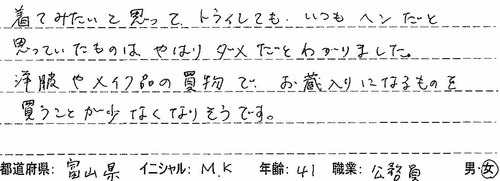 着てみたいと思って、トライしても、いつもヘンだと
思っていたものはやはりダメだとわかりました。
洋服やメイク品の買物で、お蔵入りになるものを
買うことが少なくなりそうです。
都道府県: 富山県 イニシャル: M.K 年齢: 41 職業: 公務員 男・女